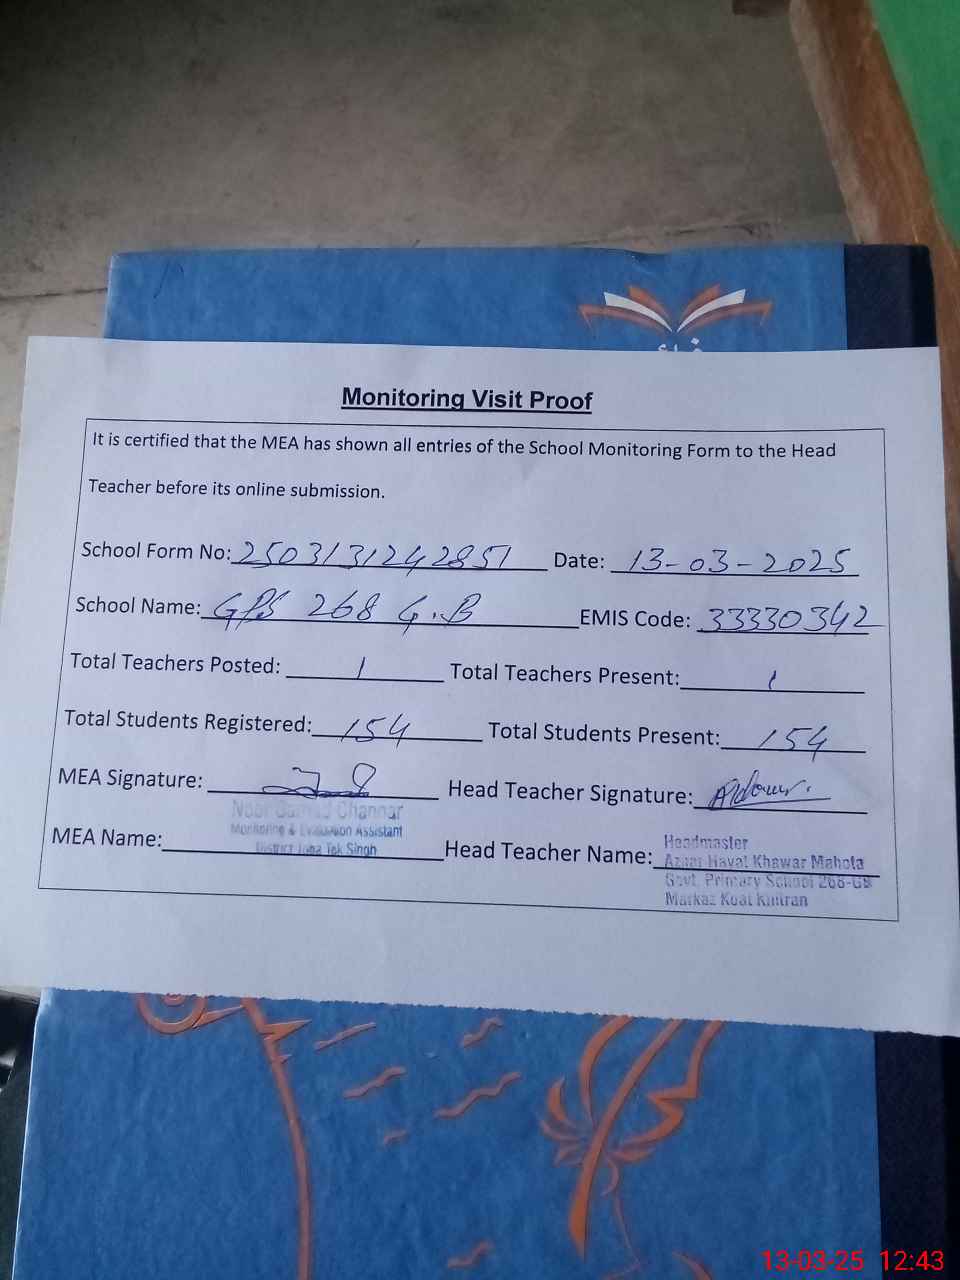 Monitoring Visit Proof
It is certified that the MEA has shown all entries of the School Monitoring Form to the Head
Teacher before its online submission.
School Form No: 2503131242851 Date: 13-03-2025
School Name: GPS 268 G.B EMIS Code: 33330342
Total Teachers Posted: 1 Total Teachers Present: 1
Total Students Registered: 154 Total Students Present: 154
MEA Signature: Head Teacher Signature:
Channar
Monitoring & Evaluation Assistant
District Toba Tek Singh
MEA Name: Head Teacher Name:
Headmaster
Azhar Hayat Khawar Mahota
Govt. Primary School 268-GB
Markaz Koat
13-03-25 12:43